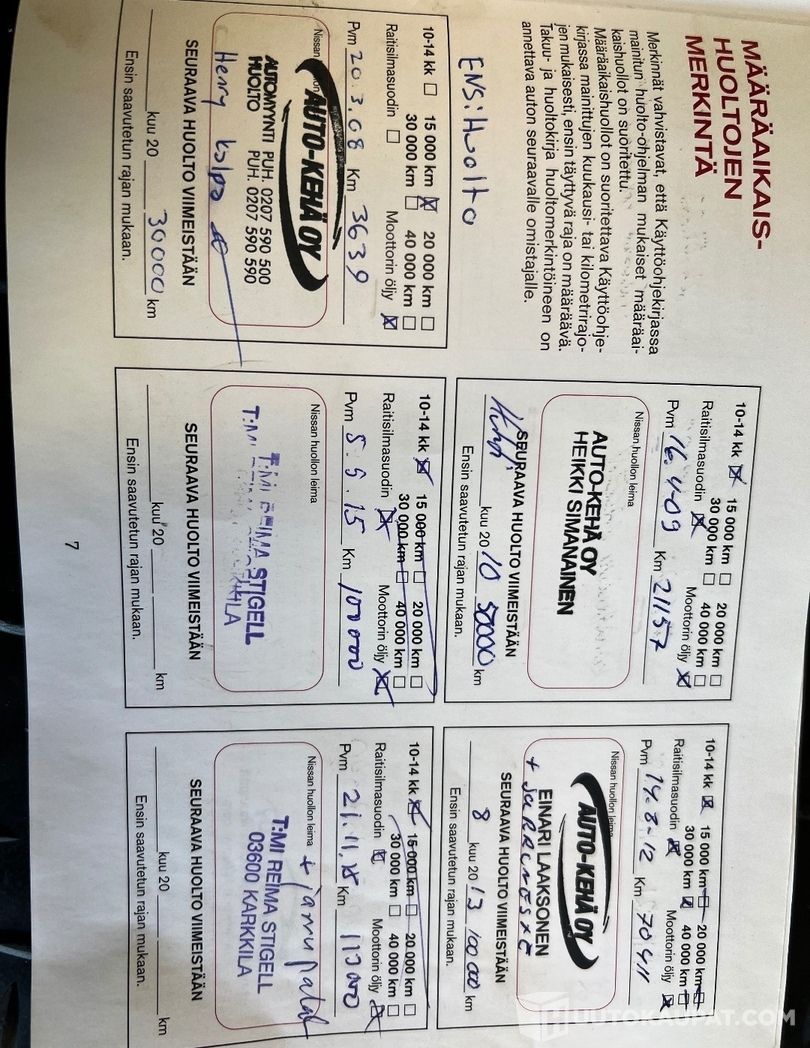 MÄÄRÄAIKAIS-
HUOLTOJEN
MERKINTÄ
Merkinnät vahvistavat, että Käyttöohjekirjassa
mainitun huolto-ohjelman mukaiset määräai-
kaishuollot on suoritettu.
Määräaikaishuollot on suoritettava Käyttöohje-
kirjassa mainittujen kuukausi- tai kilometrirajo-
jen mukaisesti, ensin täyttyvä raja on määräävä.
Takuu- ja huoltokirja huoltomerkintöineen on
annettava auton seuraavalle omistajalle.
ENSi Huolto
10-14 kk ☐ 15 000 km ☒ 20 000 km ☐
30 000 km ☐ 40 000 km ☐
Raitisilmasuodin ☐ Moottorin öljy ☒
Pvm 20.3.08 Km 3639
Nissan
AUTO-KEHÄ OY
AUTOMYYNTI PUH. 0207 590 500
HUOLTO PUH. 0207 590 590
Henry
SEURAAVA HUOLTO VIIMEISTÄÄN
kuu 20 30000 km
Ensin saavutetun rajan mukaan.
10-14 kk ☒ 15 000 km ☐ 20 000 km ☐
30 000 km ☐ 40 000 km ☐
Raitisilmasuodin ☒ Moottorin öljy ☒
Pvm 16.4.09 Km 21157
Nissan huollon leima
AUTO-KEHÄ OY
HEIKKI SIMANAINEN
SEURAAVA HUOLTO VIIMEISTÄÄN
kuu 20 10 50000 km
Ensin saavutetun rajan mukaan.
10-14 kk ☒ 15 000 km ☐ 20 000 km ☐
30 000 km ☒ 40 000 km ☐
Raitisilmasuodin ☒ Moottorin öljy ☒
Pvm 14.8-12 Km 70411
Nissan huollon leima
AUTO-KEHÄ OY
EINARI LAAKSONEN
+ JARRUNESTE
SEURAAVA HUOLTO VIIMEISTÄÄN
8 kuu 20 13 100 000 km
Ensin saavutetun rajan mukaan.
10-14 kk ☒ 15 000 km ☐ 20 000 km ☐
30 000 km ☐ 40 000 km ☐
Raitisilmasuodin ☒ Moottorin öljy ☒
Pvm 5.5.15 Km 100000
Nissan huollon leima
T:MI REIMA STIGELL
SEURAAVA HUOLTO VIIMEISTÄÄN
kuu 20 km
Ensin saavutetun rajan mukaan.
10-14 kk ☒ 15 000 km ☐ 20 000 km ☐
30 000 km ☐ 40 000 km ☐
Raitisilmasuodin ☒ Moottorin öljy ☒
Pvm 21.11.15 Km 113000
Nissan huollon leima + jarrupalat
T:MI REIMA STIGELL
03600 KARKKILA
SEURAAVA HUOLTO VIIMEISTÄÄN
kuu 20 km
Ensin saavutetun rajan mukaan.
7
HUUTOKAUPAT.COM